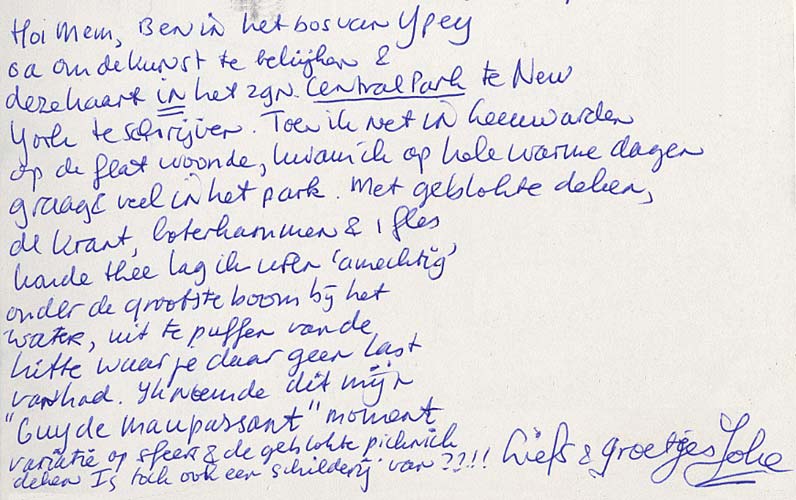 Hoi Mem, Ben in het bos van Ypey
oa om de kunst te bekijken &
deze kaart in het zgn. Central Park te New
York te schrijven. Toen ik net in Leeuwarden
op de flat woonde, kwam ik op hele warme dagen
graag & veel in het park. Met geblokte deken,
de krant, boterhammen & 1 fles
koude thee lag ik uren 'amechtig'
onder de grootste boom bij het
water, uit te puffen van de
hitte waar je daar geen last
van had. Ik noemde dit mijn
"Guy de Maupassant" moment
variatie op sfeer & de geblokte picknick
deken Is toch ook een schilderij van ??!! Liefs & groetjes Joke